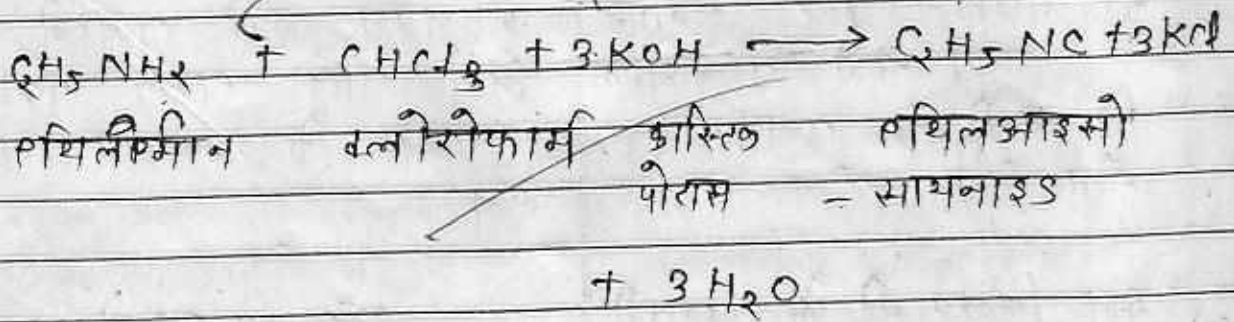 C₂H₅NH₂ + CHCl₃ + 3KOH ⟶ C₂H₅NC + 3KCl
एथिलएमीन क्लोरोफार्म कास्टिक एथिलआइसो
पोटास - सायनाइड
+ 3H₂O